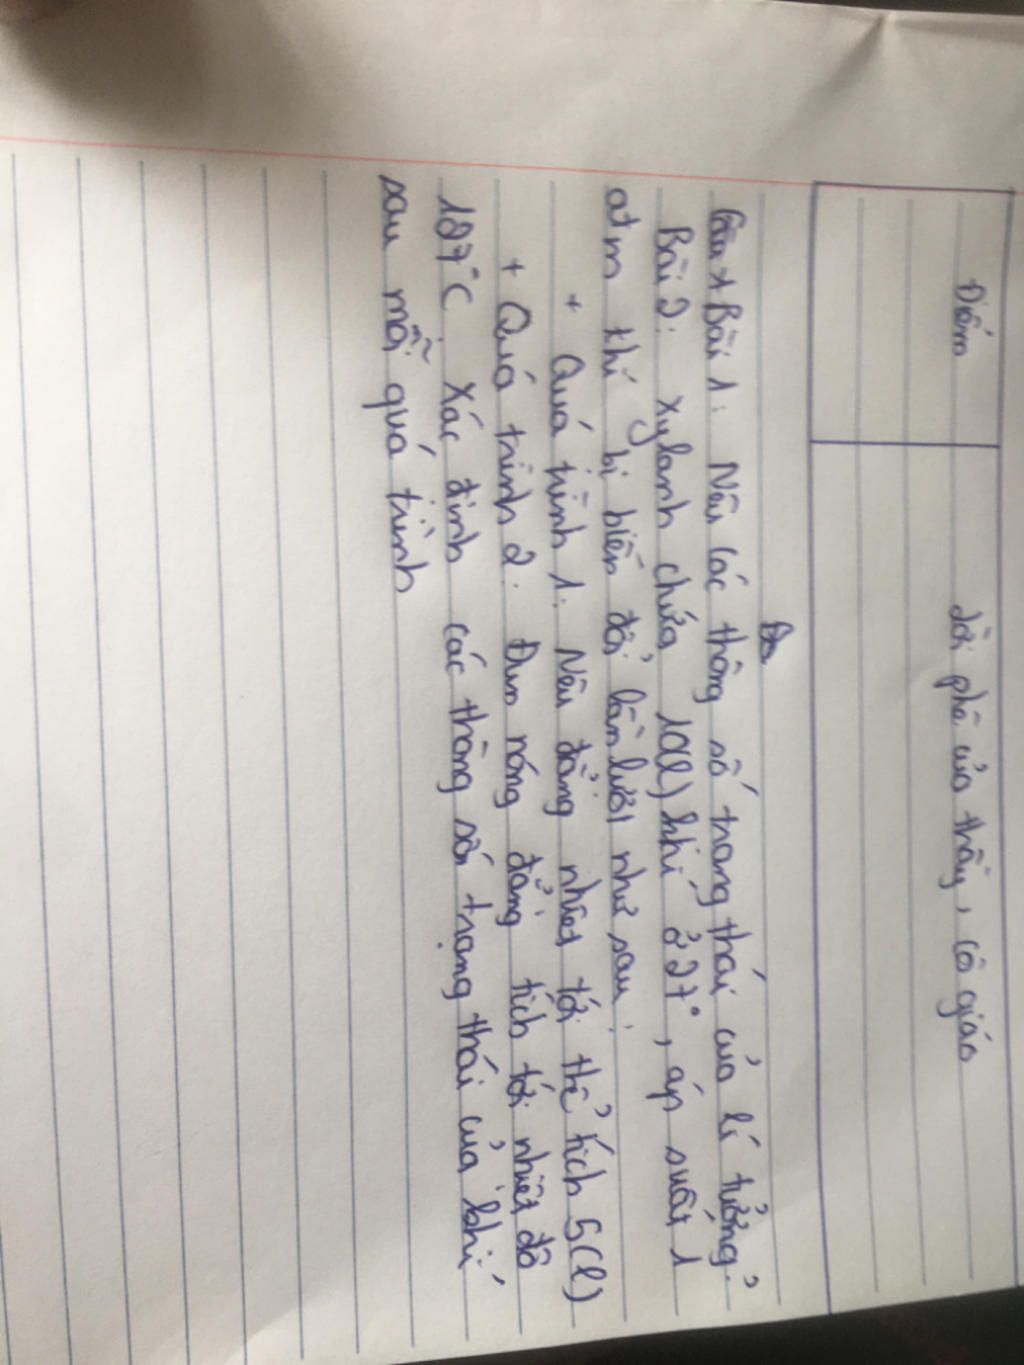 Điểm
Lời phê của thầy, cô giáo
Bài 1: Nêu các thông số trang thái của lí tưởng?
Bài 2: Xylanh chứa 10(l) khí ở 27°, áp suất 1
atm khí bị biến đổi lần lượt như sau:
+ Quá trình 1: Nén đẳng nhiệt tới thể tích 5(l)
+ Quá trình 2: Đun nóng đẳng tích tới nhiệt độ
127°C. Xác định các thông số trạng thái của khí
sau mỗi quá trình